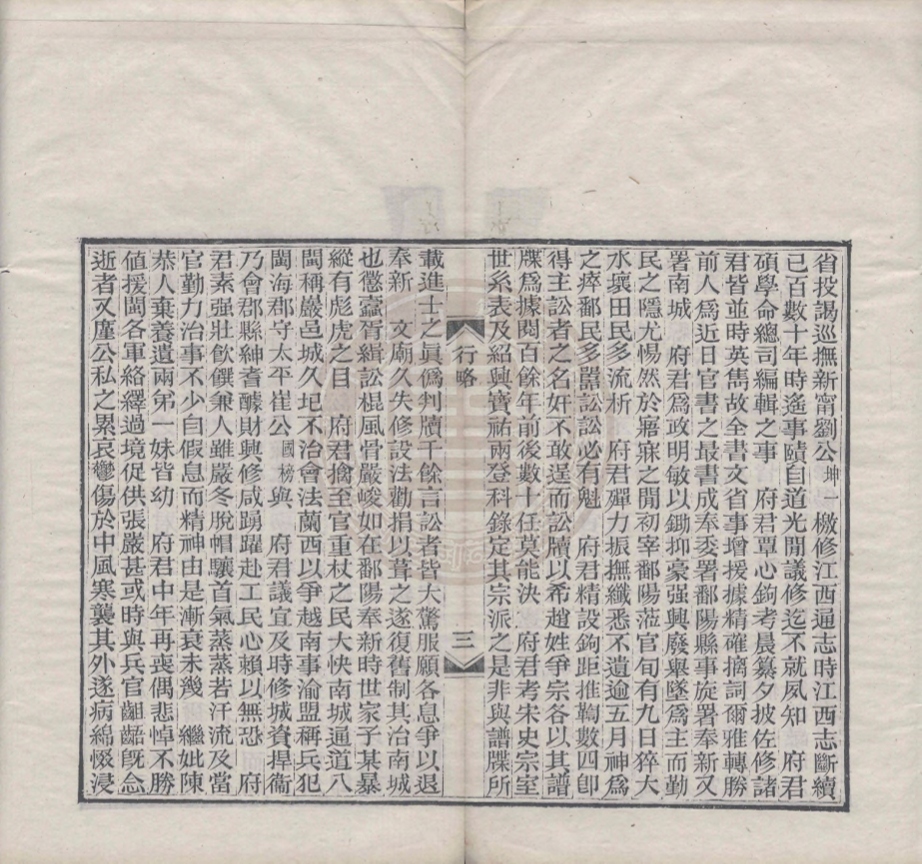 省投謁巡撫新甯劉公坤一檄修江西通志時江西志斷續
已百數十年時遙事賾自道光閒議修迄不就夙知　府君
碩學命總司編輯之事　府君覃心鉤考晨纂夕披佐修諸
君皆並時英雋故全書文省事增援據精確摛詞爾雅轉勝
前人爲近日官書之最書成奉委署鄱陽縣事旋署奉新又
署南城　府君爲政明敏以鋤抑豪强興廢舉墜爲主而勤
民之隱尤惕然於寤寐之閒初宰鄱陽蒞官旬有九日猝大
水壞田民多流析　府君殫力振撫纖悉不遺逾五月神爲
之瘁鄱民多嚚訟訟必有魁　府君精設鉤距推鞫數四卽
得主訟者之名奸不敢逞而訟牘以希趙姓爭宗各以其譜
牒爲據閱百餘年前後數十任莫能決　府君考宋史宗室
世系表及紹興寶祐兩登科錄定其宗派之是非與譜牒所
行略
三
載進士之眞僞判牘千餘言訟者皆大驚服願各息爭以退
奉新　文廟久失修設法勸捐以葺之遂復舊制其治南城
也懲蠹胥緝訟棍風骨嚴峻如在鄱陽奉新時世家子某暴
縱有彪虎之目　府君擒至官重杖之民大快南城通道八
閩稱巖邑城久圮不治會法蘭西以爭越南事渝盟稱兵犯
閩海郡守太平崔公國榜與　府君議宜及時修城資捍衞
乃會郡縣紳耆醵財興修咸踴躍赴工民心賴以無恐　府
君素强壯飲饌兼人雖嚴冬脫帽驤首氣蒸蒸若汗流及當
官勤力治事不少自假息而精神由是漸衰未幾　繼妣陳
恭人棄養遺兩弟一妹皆幼　府君中年再喪偶悲悼不勝
値援閩各軍絡繹過境促供張嚴甚或時與兵官齟齬旣念
逝者又塵公私之累哀鬱傷於中風寒襲其外遂病綿惙浸